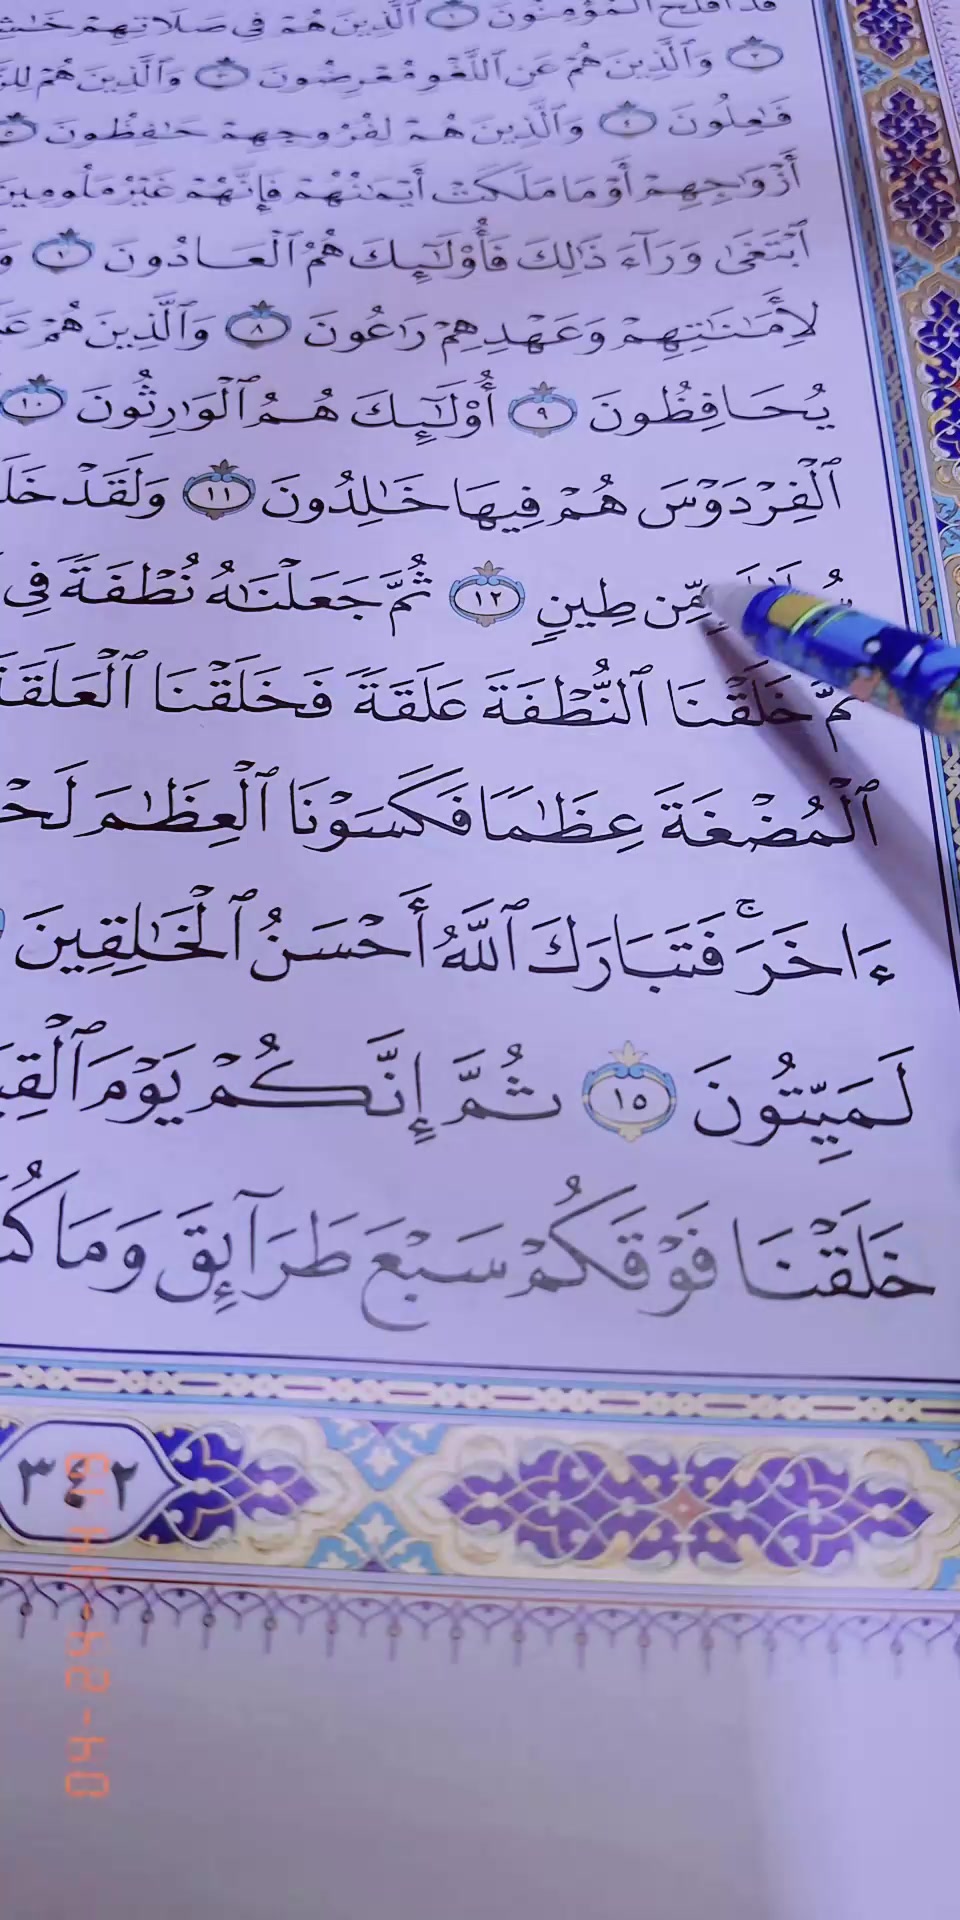 قَدْ أَفْلَحَ ٱلْمُؤْمِنُونَ ١ ٱلَّذِينَ هُمْ فِى صَلَاتِهِمْ
٢ وَٱلَّذِينَ هُمْ عَنِ ٱللَّغْوِ مُعْرِضُونَ ٣ وَٱلَّذِينَ هُمْ
فَٰعِلُونَ ٤ وَٱلَّذِينَ هُمْ لِفُرُوجِهِمْ حَٰفِظُونَ ٥
أَزْوَٰجِهِمْ أَوْ مَا مَلَكَتْ أَيْمَٰنُهُمْ فَإِنَّهُمْ غَيْرُ مَلُومِينَ
ٱبْتَغَىٰ وَرَآءَ ذَٰلِكَ فَأُو۟لَٰٓئِكَ هُمُ ٱلْعَادُونَ ٧
لِأَمَٰنَٰتِهِمْ وَعَهْدِهِمْ رَٰعُونَ ٨ وَٱلَّذِينَ هُمْ
يُحَافِظُونَ ٩ أُو۟لَٰٓئِكَ هُمُ ٱلْوَٰرِثُونَ ١٠
ٱلْفِرْدَوْسَ هُمْ فِيهَا خَٰلِدُونَ ١١ وَلَقَدْ
مِّن طِينٍ ١٢ ثُمَّ جَعَلْنَٰهُ نُطْفَةً فِى
ثُمَّ خَلَقْنَا ٱلنُّطْفَةَ عَلَقَةً فَخَلَقْنَا ٱلْعَلَقَةَ
ٱلْمُضْغَةَ عِظَٰمًا فَكَسَوْنَا ٱلْعِظَٰمَ
ءَاخَرَ ۚ فَتَبَارَكَ ٱللَّهُ أَحْسَنُ ٱلْخَٰلِقِينَ
لَمَيِّتُونَ ١٥ ثُمَّ إِنَّكُمْ يَوْمَ
خَلَقْنَا فَوْقَكُمْ سَبْعَ طَرَآئِقَ وَمَا
٣٤٢